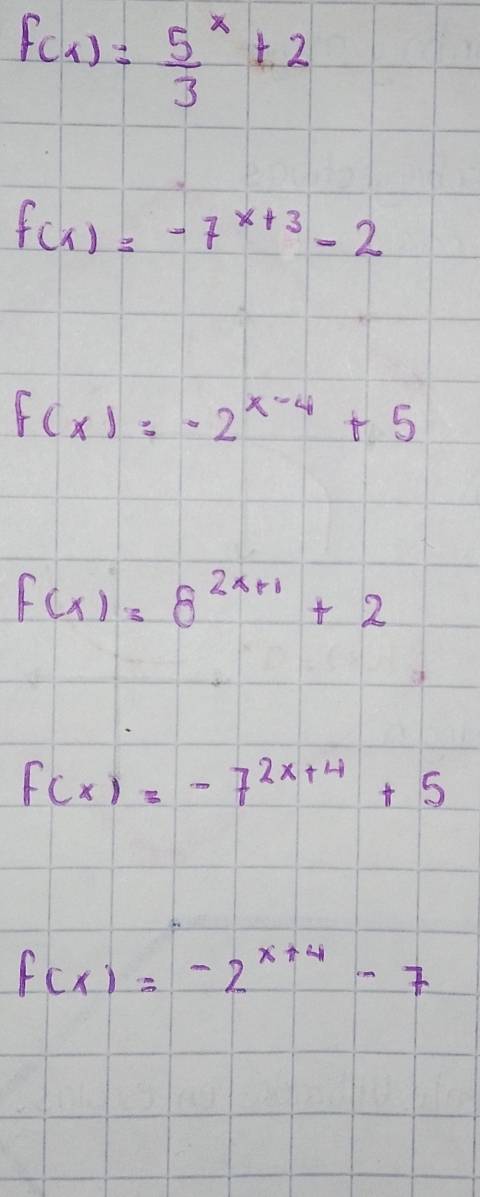 f(x) = 5/3^x + 2
f(x) = -7^x+3 - 2
f(x) = -2^x-4 + 5
f(x) = 8^2x+1 + 2
f(x) = -7^2x+4 + 5
f(x) = -2^x+4 - 7